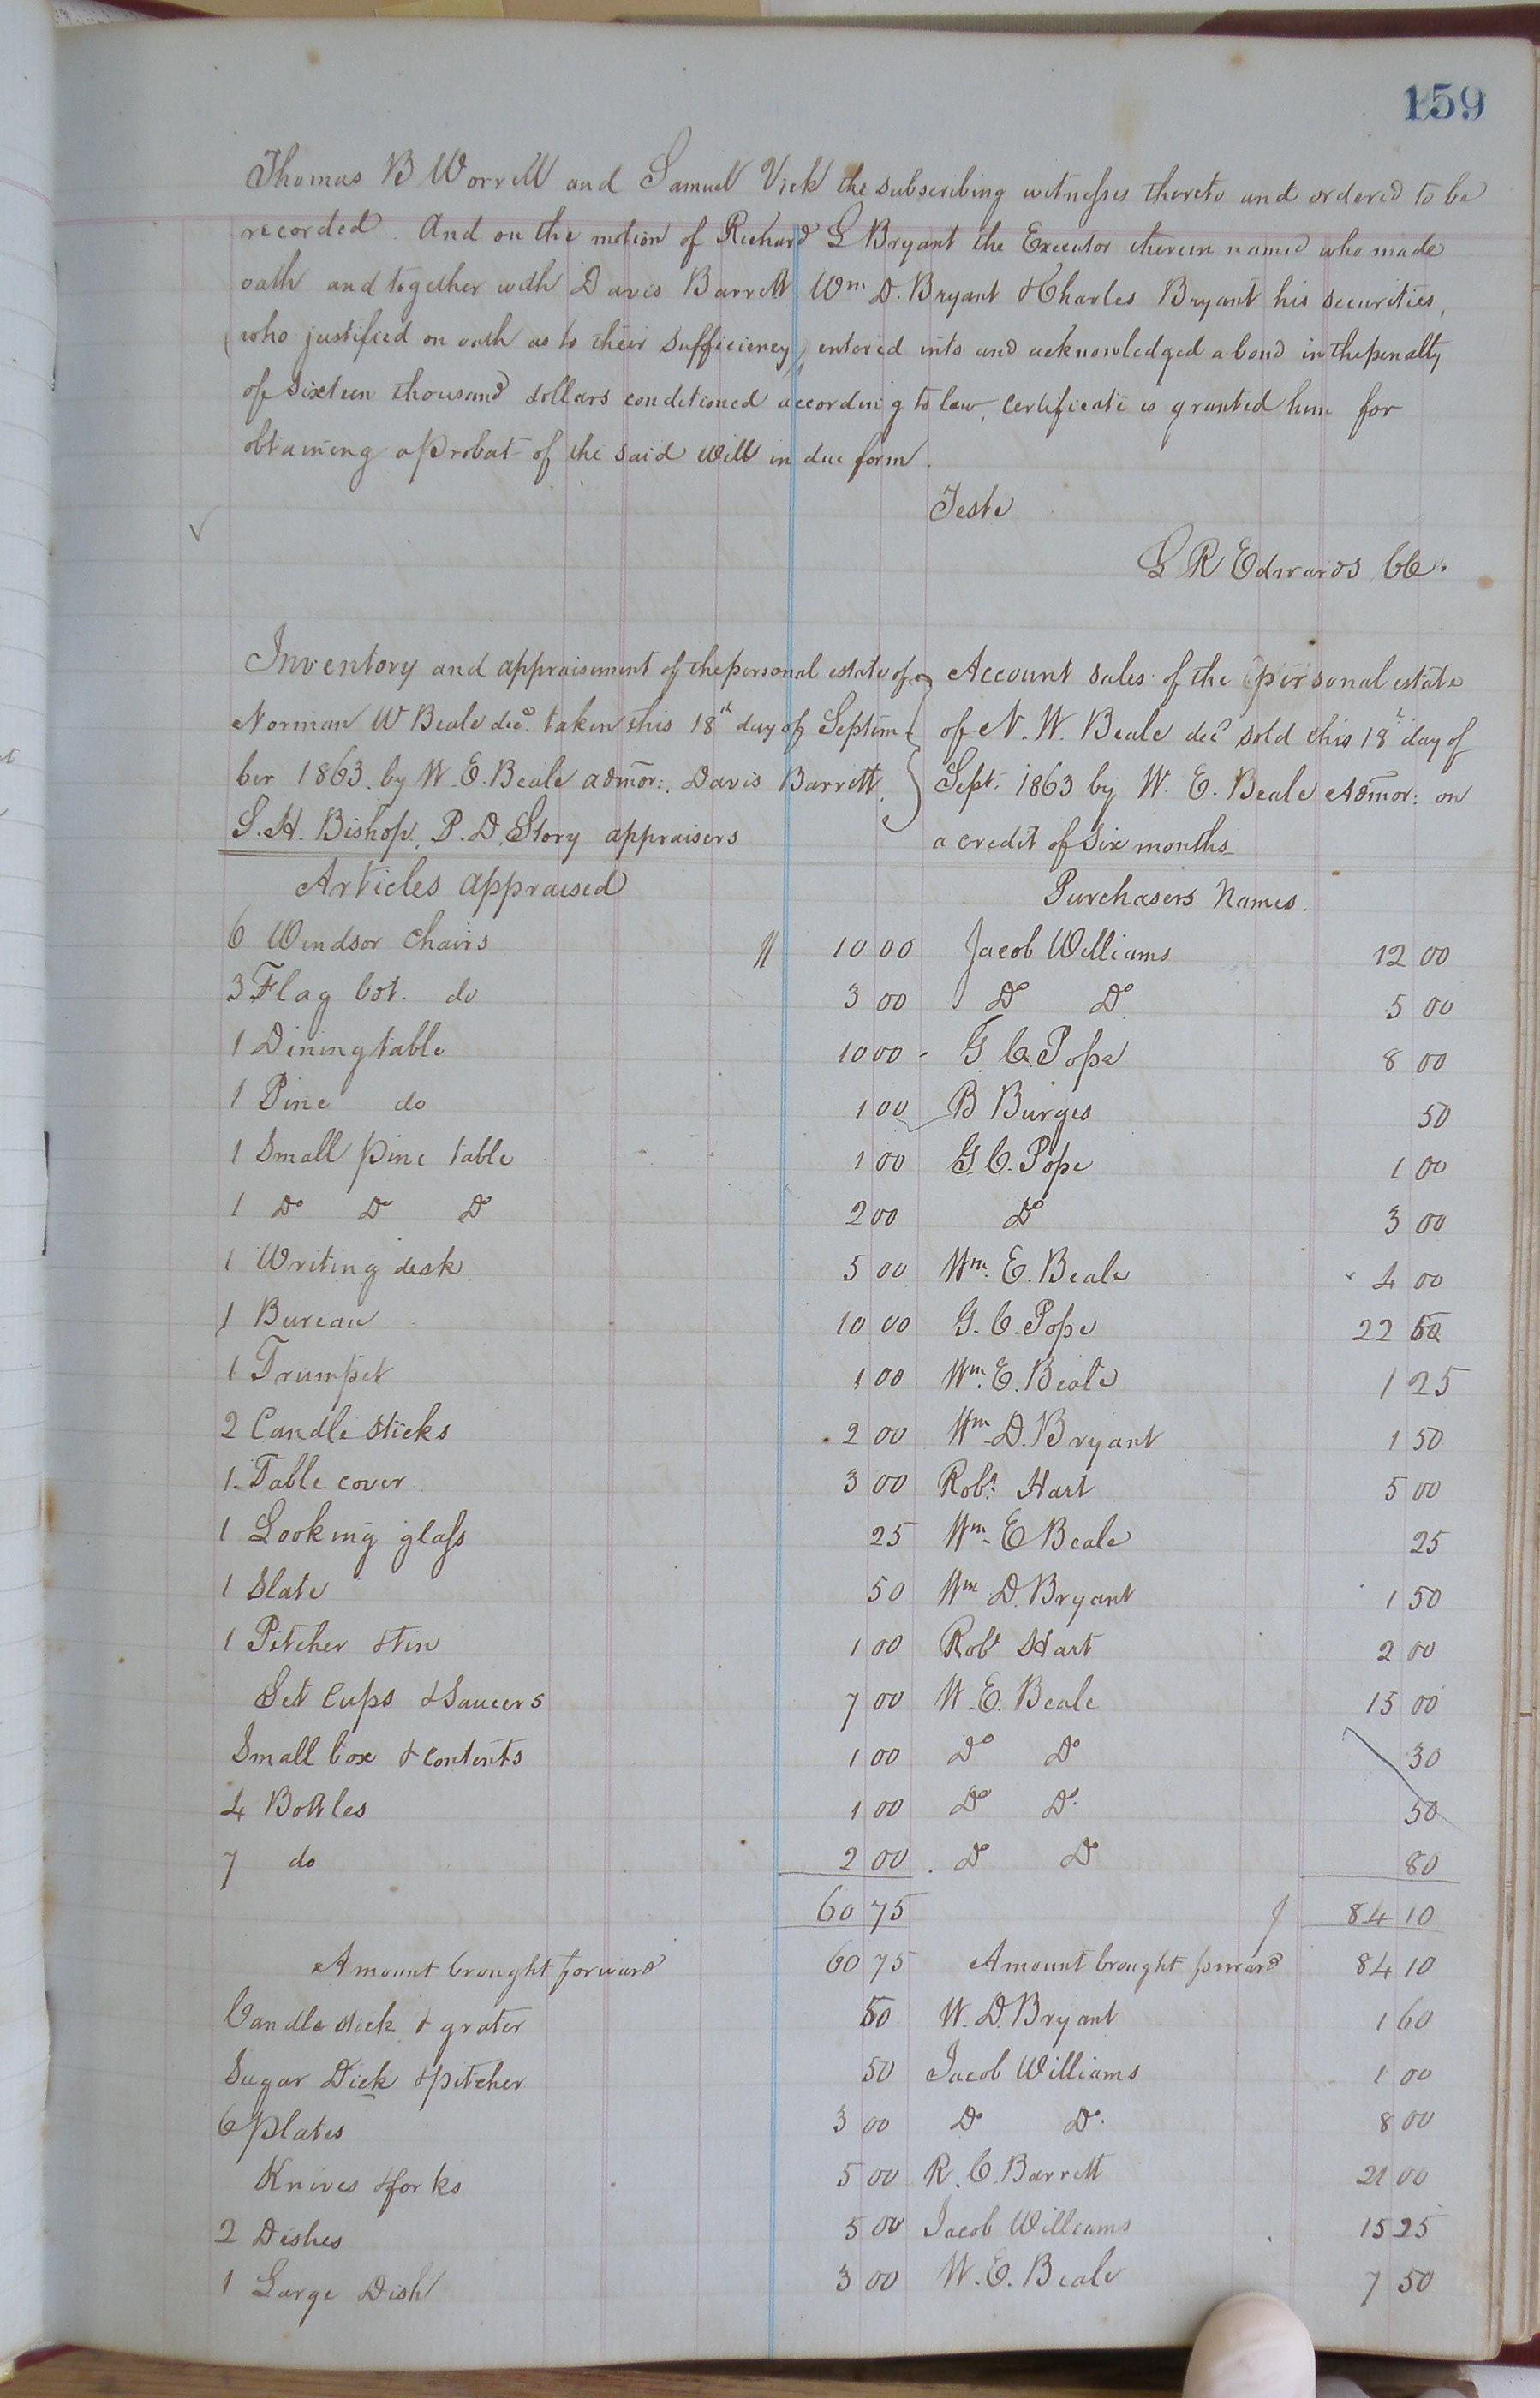 159
Thomas B Worrell and Samuel Vick the subscribing witnesses thereto and ordered to be
recorded. And on the motion of Richard G Bryant the Executor therein named who made
oath and together with Davis Barrett Wm D. Bryant & Charles Bryant his securities,
(who justified on oath as to their sufficiency) entered into and acknowledged a bond in the penalty
of sixteen thousand dollars conditioned according to law, certificate is granted him for
obtaining a probat of the said will in due form.
Teste
L R Edwards CC.
Inventory and appraisement of the personal estate of
Norman W Beale decd. taken this 18th day of Septem-
ber 1863. by W. E. Beale admor:, Davis Barrett,
S. H. Bishop, P. D. Story appraisers
Account sales of the personal estate
of N. W. Beale decd sold this 18th day of
Sept. 1863 by W. E. Beale Admor: on
a credit of six months
Articles appraised Purchasers Names.
6 Windsor Chairs 10 00 Jacob Williams 12 00
3 Flag bot. do 3 00 Do Do 5 00
1 Dining table 10 00 - G. C. Pope 8 00
1 Pine do 1 00 B Burges 50
1 Small pine table 1 00 G. C. Pope 1 00
1 Do Do Do 2 00 Do 3 00
1 Writing desk 5 00 Wm. E. Beale 4 00
1 Bureau 10 00 G. C. Pope 22 50
1 Trumpet 1 00 Wm. E. Beale 1 25
2 Candle sticks 2 00 Wm D. Bryant 1 50
1 Table cover 3 00 Robt. Hart 5 00
1 Looking glass 25 Wm. E Beale 25
1 Slate 50 Wm D. Bryant 1 50
1 Pitcher & tin 1 00 Robt Hart 2 00
Set Cups & Saucers 7 00 W. E. Beale 15 00
Small box & contents 1 00 Do Do 30
4 Bottles 1 00 Do Do. 50
7 do 2 00 Do Do 80
60 75 84 10
Amount brought forward 60 75 Amount brought forward 84 10
Candle stick & grater 50 W. D. Bryant 1 60
Sugar Dick & pitcher 50 Jacob Williams 1 00
6 plates 3 00 Do Do. 8 00
Knives & forks 5 00 R. C. Barrett 21 00
2 Dishes 5 00 Jacob Williams 15 25
1 Large Dish 3 00 W. E. Beale 7 50